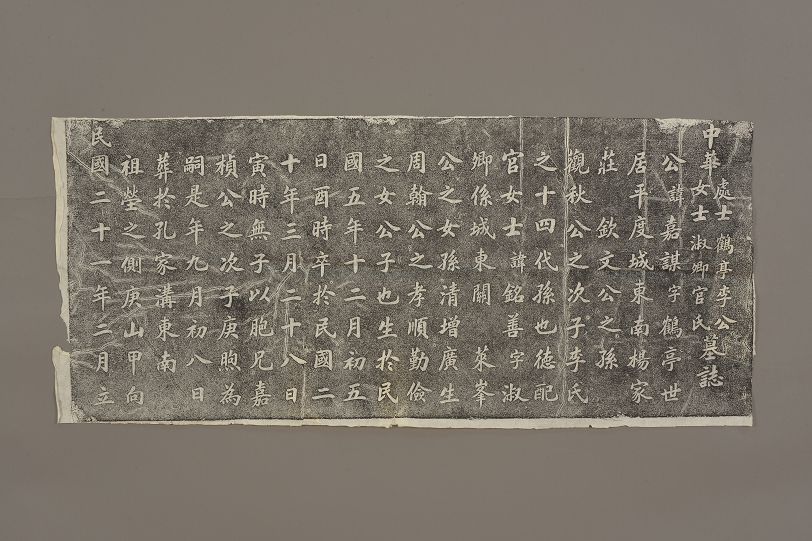 中華處士鶴亭李公女士淑卿官氏墓誌
公諱嘉謀字鶴亭世
居平度城東南楊家
莊　欽文公之孫
觀秋公之次子李氏
之十四代孫也德配
官女士諱銘善字淑
卿係城東關　萊峯
公之女孫清增廣生
周翰公之孝順勤儉
之女公子也生於民
國五年十二月初五
日酉時卒於民國二
十年三月二十八日
寅時無子以胞兄嘉
楨公之次子庚煦為
嗣是年九月初八日
葬於孔家溝東南
祖塋之側庚山甲向
民國二十一年二月立